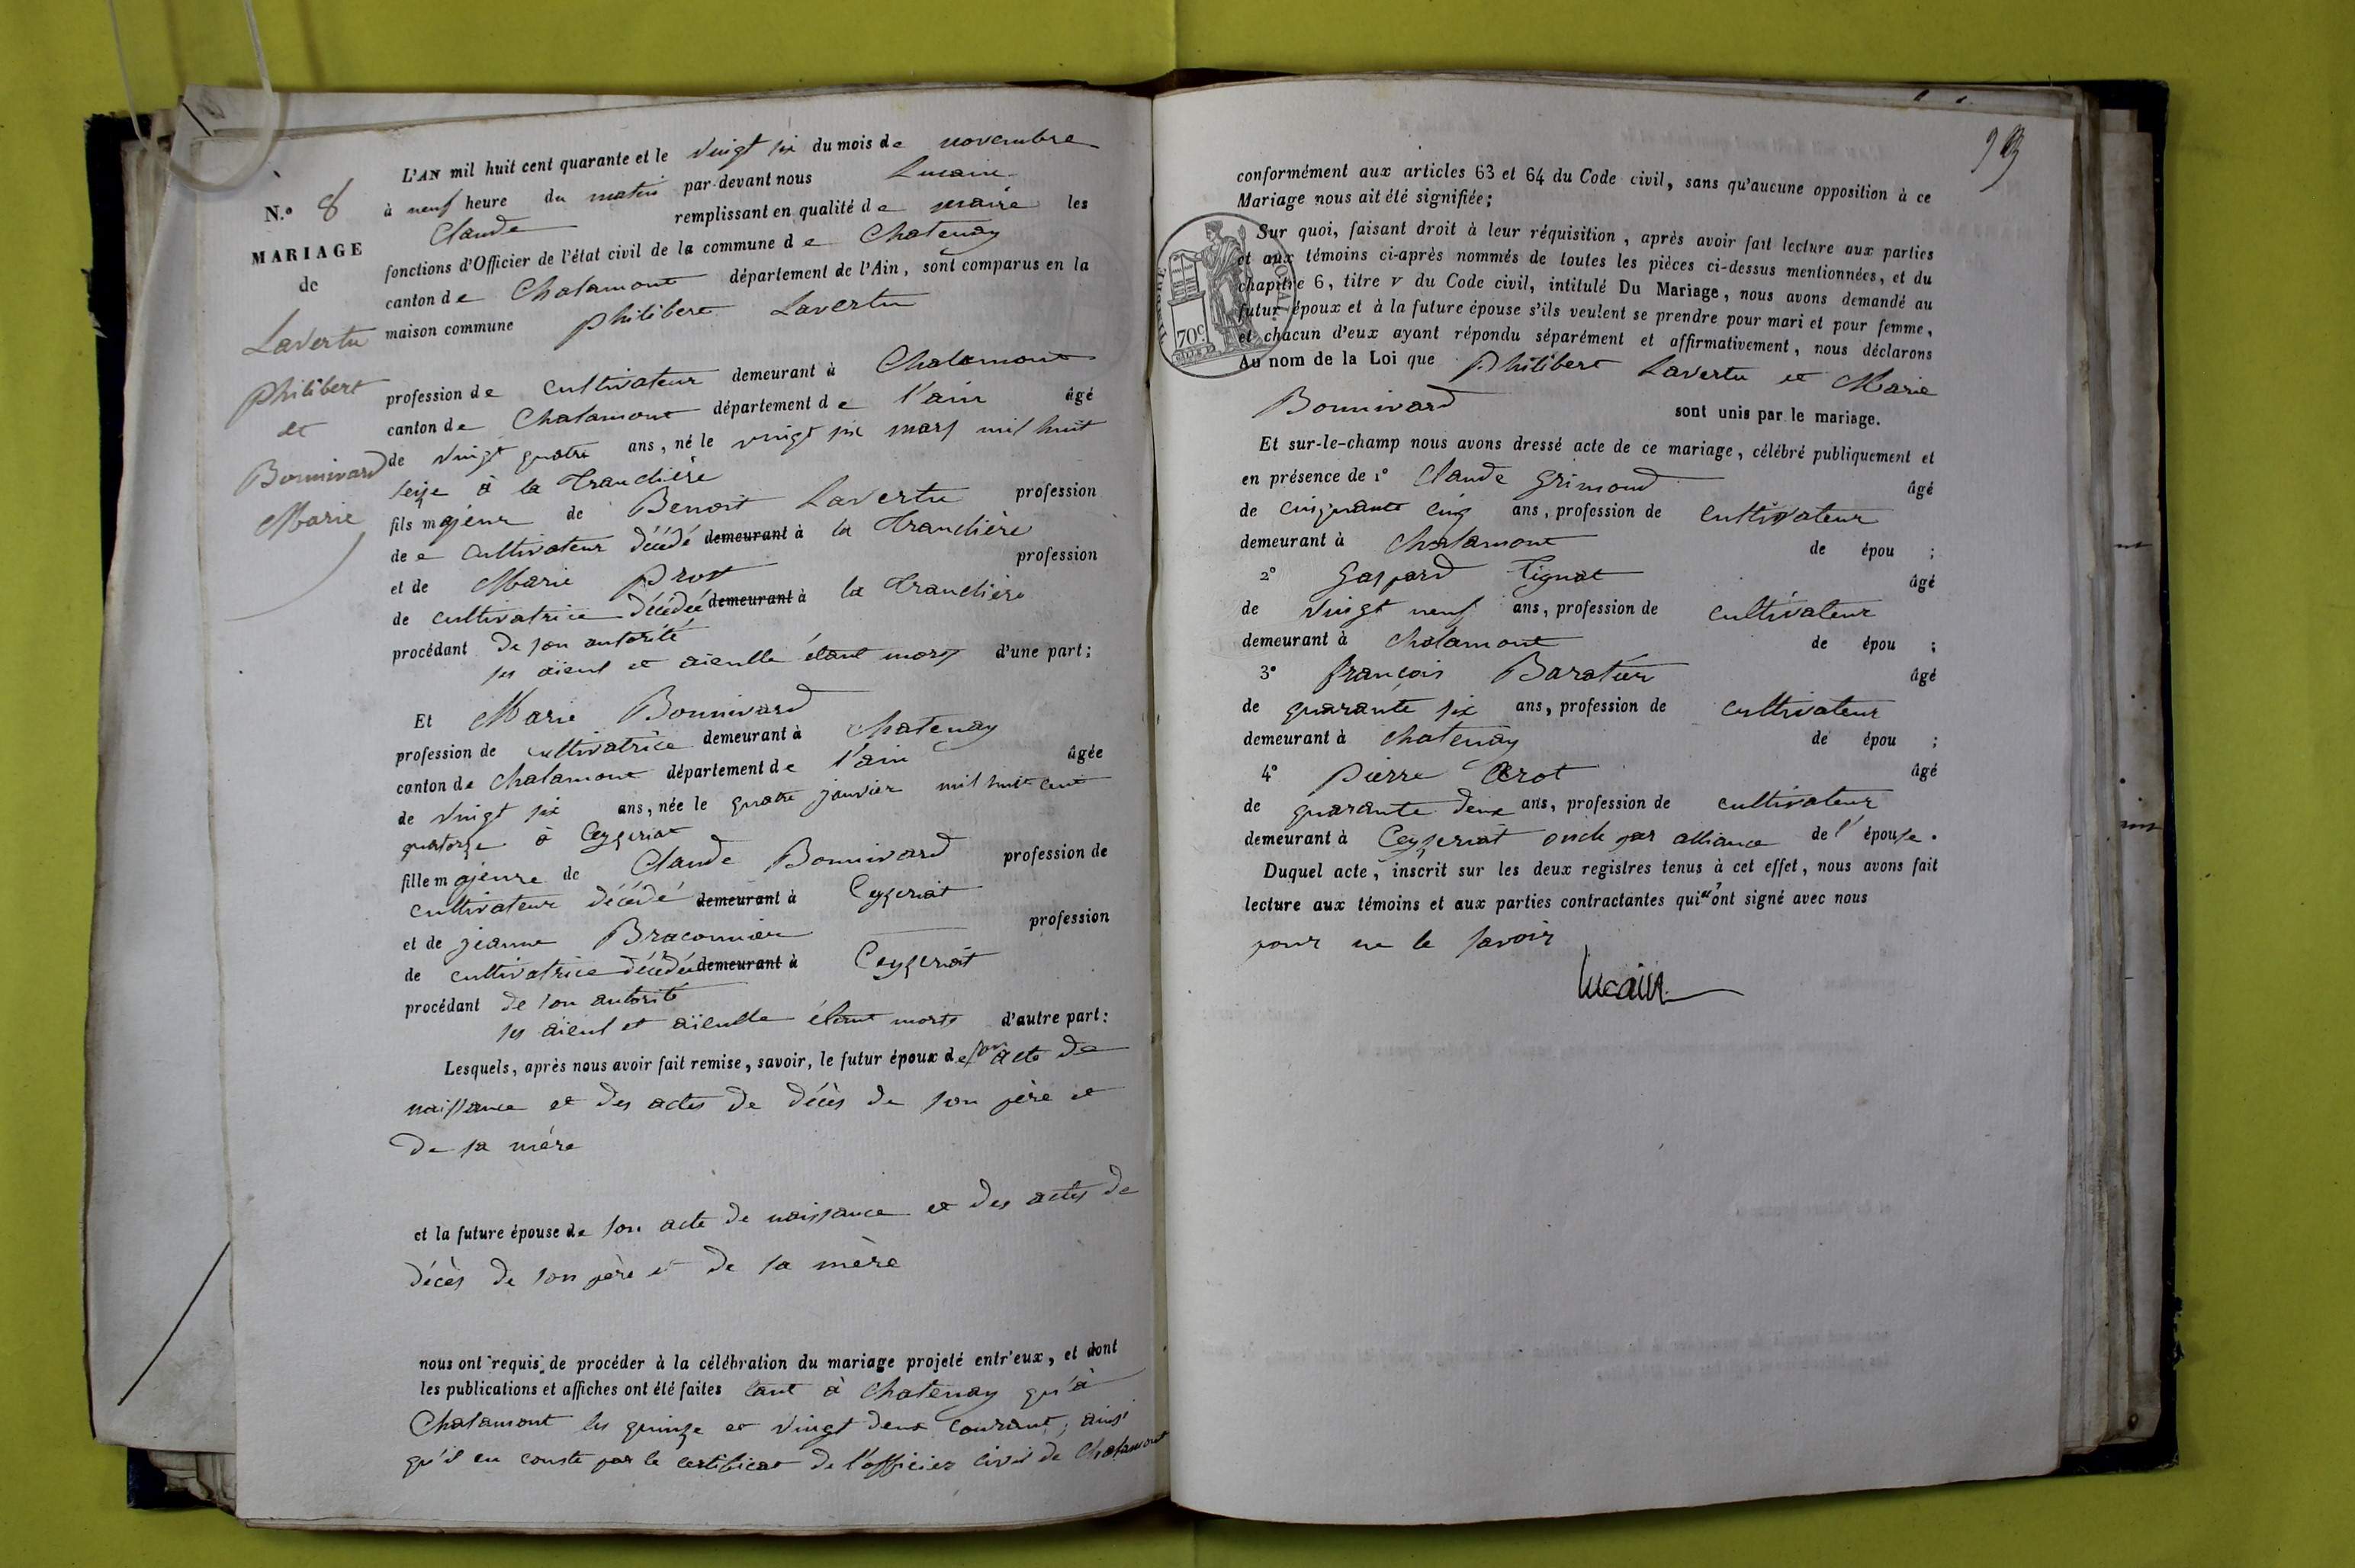 N.o 8
MARIAGE
de
Lavertu
Philibert
et
Bonnivard
Marie
L'AN mil huit cent quarante et le vingt six du mois de novembre
à neuf heure du matin par-devant nous Lucain
Claude remplissant en qualité de maire les
fonctions d'Officier de l'état civil de la commune de Chatenay
canton de Chalamont département de l'Ain, sont comparus en la
maison commune Philibert Lavertu
profession de cultivateur demeurant à Chalamont
canton de Chalamont département de l'ain âgé
de vingt quatre ans, né le vingt six mars mil huit
seize à la Tranclière
fils majeur de Benoit Lavertu profession
de cultivateur décédé demeurant à la Tranclière
et de Marie Prost profession
de cultivatrice décédée demeurant à la Tranclière
procédant de son autorité
ses aïeul et aieulle étant morts d'une part;
Et Marie Bonnivard
profession de cultivatrice demeurant à Chatenay
canton de Chalamont département de l'ain âgée
de vingt six ans, née le quatre janvier mil huit cent
quatorze à Ceyzeriat
fille majeure de Claude Bonnivard profession de
cultivateur décédé demeurant à Ceyzeriat
et de jeanne Braconnier profession
de cultivatrice décédée demeurant à Ceyzeriat
procédant de son autorité
ses aïeul et aïeulle étant morts d'autre part:
Lesquels, après nous avoir fait remise, savoir, le futur époux de son acte de
naissance et des actes de décès de son père et
de sa mère
et la future épouse de son acte de naissance et des actes de
décès de son père et de sa mère
nous ont requis de procéder à la célébration du mariage projeté entr'eux, et dont
les publications et affiches ont été faites tant à Chatenay qu'à
Chalamont les quinze et vingt deux courant, ainsi
qu'il en conste par le certificat de l'officier civil de Chalamont
conformément aux articles 63 et 64 du Code civil, sans qu'aucune opposition à ce
Mariage nous ait été signifiée;
Sur quoi, faisant droit à leur réquisition, après avoir fait lecture aux parties
et aux témoins ci-après nommés de toutes les pièces ci-dessus mentionnées, et du
chapitre 6, titre v du Code civil, intitulé Du Mariage, nous avons demandé au
futur époux et à la future épouse s'ils veulent se prendre pour mari et pour femme,
et chacun d'eux ayant répondu séparément et affirmativement, nous déclarons
Au nom de la Loi que Philibert Lavertu et Marie
Bonnivard sont unis par le mariage.
70c
Et sur-le-champ nous avons dressé acte de ce mariage, célébré publiquement et
en présence de 1° Claude Grimond âgé
de cinquante cinq ans, profession de cultivateur
demeurant à Chalamont de épou ;
2° Gaspard Tignat âgé
de vingt neuf ans, profession de cultivateur
demeurant à Chalamont de épou ;
3° françois Baratier âgé
de quarante six ans, profession de cultivateur
demeurant à Chatenay de épou ;
4° pierre âgé
de quarante deux ans, profession de cultivateur
demeurant à Ceyzeriat oncle par alliance de l'épouse.
Duquel acte, inscrit sur les deux registres tenus à cet effet, nous avons fait
lecture aux témoins et aux parties contractantes qui n'ont signé avec nous
pour ne le savoir
Lucain